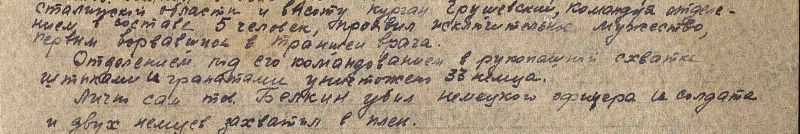 сталинской области и высоту курган Грушевский, командуя отделе-
нием в составе 5 человек, проявил исключительное мужество,
первым ворвавшись в траншеи врага.
Отделением под его командованием в рукопашной схватке
штыками и гранатами уничтожено 33 немца.
Лично сам тов. Белкин убил немецкого офицера и солдата
и двух немцев захватил в плен.